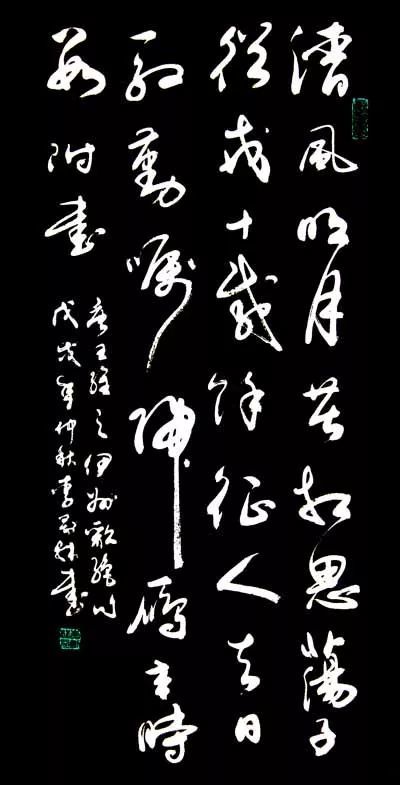 清風明月苦相思蕩子
從戎十載餘征人去日
殷勤囑歸雁來時
數附書
王維之伊州歌絕句
戊戌年仲秋李書